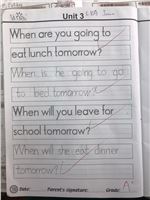 Unit 3
When are you going to
eat lunch tomorrow?
When is he going to go
to bed tomorrow?
When will you leave for
school tomorrow?
When will she eat dinner
tomorrow?
Date: Parent's signature: Grade: A